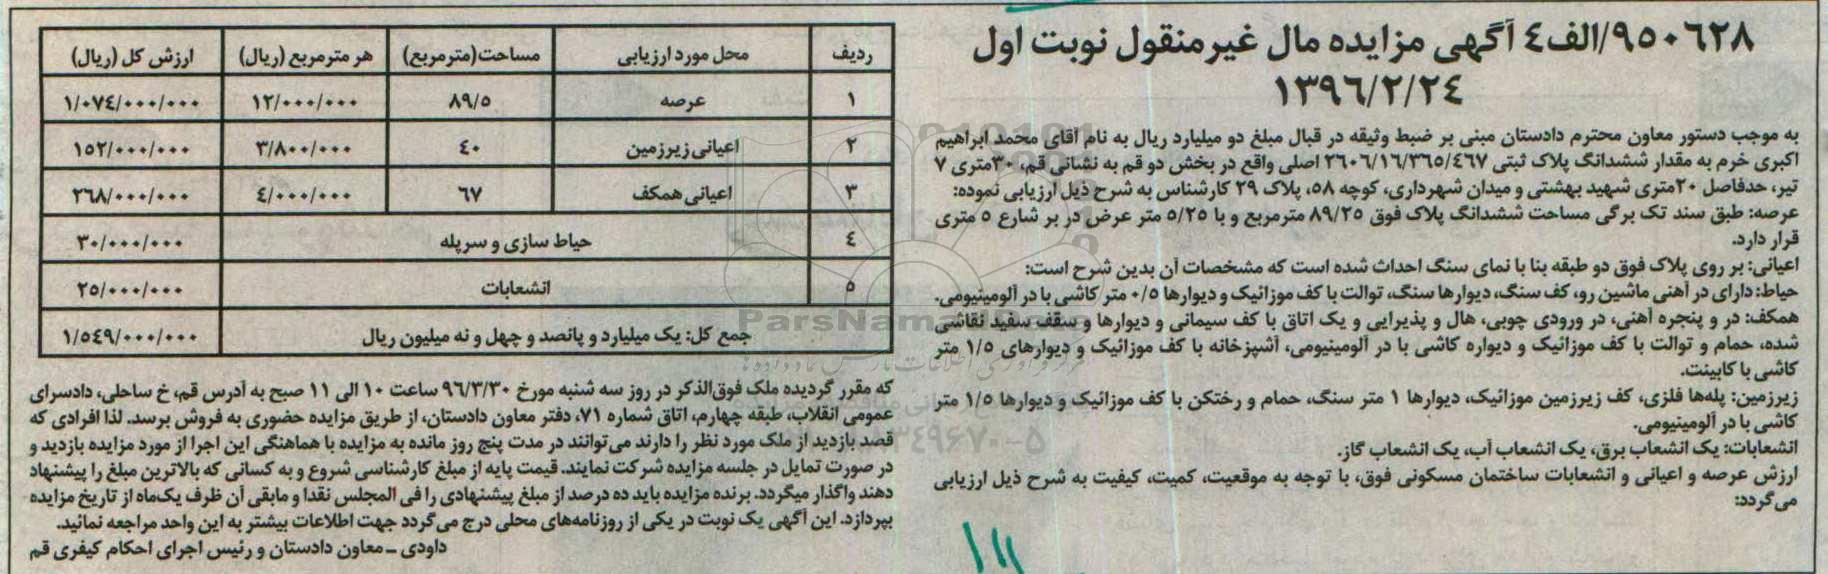 ۹۵۰۶۲۸/الف٤ آگهی مزایده مال غیرمنقول نوبت اول
۱۳۹٦/۲/۲٤
به موجب دستور معاون محترم دادستان مبنی بر ضبط وثیقه در قبال مبلغ دو میلیارد ریال به نام آقای محمد ابراهیم
اکبری خرم به مقدار ششدانگ پلاک ثبتی ۲٦۰٦/۱٦/۳٦٥/٤٦۷ اصلی واقع در بخش دو قم به نشانی قم، ۳۰متری ۷
تیر، حدفاصل ۲۰متری شهید بهشتی و میدان شهرداری، کوچه ۵۸، پلاک ۲۹ کارشناس به شرح ذیل ارزیابی نموده:
عرصه: طبق سند تک برگی مساحت ششدانگ پلاک فوق ۸۹/۲۵ مترمربع و با ۵/۲۵ متر عرض در بر شارع ۵ متری
قرار دارد.
اعیانی: بر روی پلاک فوق دو طبقه بنا با نمای سنگ احداث شده است که مشخصات آن بدین شرح است:
حیاط: دارای در آهنی ماشین رو، کف سنگ، دیوارها سنگ، توالت با کف موزائیک و دیوارها ۰/۵ متر کاشی با در آلومینیومی.
همکف: در و پنجره آهنی، در ورودی چوبی، هال و پذیرایی و یک اتاق با کف سیمانی و دیوارها و سقف سفید نقاشی
شده، حمام و توالت با کف موزائیک و دیواره کاشی با در آلومینیومی، آشپزخانه با کف موزائیک و دیوارهای ۱/۵ متر
کاشی با کابینت.
زیرزمین: پله‌ها فلزی، کف زیرزمین موزائیک، دیوارها ۱ متر سنگ، حمام و رختکن با کف موزائیک و دیوارها ۱/۵ متر
کاشی با در آلومینیومی.
انشعابات: یک انشعاب برق، یک انشعاب آب، یک انشعاب گاز.
ارزش عرصه و اعیانی و انشعابات ساختمان مسکونی فوق، با توجه به موقعیت، کمیت، کیفیت به شرح ذیل ارزیابی
می‌گردد:
ردیف محل مورد ارزیابی مساحت(مترمربع) هر مترمربع (ریال) ارزش کل (ریال)
۱ عرصه ۸۹/۵ ۱۲/۰۰۰/۰۰۰ ۱/۰۷٤/۰۰۰/۰۰۰
۲ اعیانی زیرزمین ٤۰ ۳/۸۰۰/۰۰۰ ۱۵۲/۰۰۰/۰۰۰
۳ اعیانی همکف ٦۷ ٤/۰۰۰/۰۰۰ ۲٦۸/۰۰۰/۰۰۰
٤ حیاط سازی و سرپله ۳۰/۰۰۰/۰۰۰
۵ انشعابات ۲۵/۰۰۰/۰۰۰
جمع کل: یک میلیارد و پانصد و چهل و نه میلیون ریال ۱/۵٤۹/۰۰۰/۰۰۰
که مقرر گردیده ملک فوق‌الذکر در روز سه شنبه مورخ ۹٦/۳/۳۰ ساعت ۱۰ الی ۱۱ صبح به آدرس قم، خ ساحلی، دادسرای
عمومی انقلاب، طبقه چهارم، اتاق شماره ۷۱، دفتر معاون دادستان، از طریق مزایده حضوری به فروش برسد. لذا افرادی که
قصد بازدید از ملک مورد نظر را دارند می‌توانند در مدت پنج روز مانده به مزایده با هماهنگی این اجرا از مورد مزایده بازدید و
در صورت تمایل در جلسه مزایده شرکت نمایند. قیمت پایه از مبلغ کارشناسی شروع و به کسانی که بالاترین مبلغ را پیشنهاد
دهند واگذار میگردد. برنده مزایده باید ده درصد از مبلغ پیشنهادی را فی المجلس نقدا و مابقی آن ظرف یک‌ماه از تاریخ مزایده
بپردازد. این آگهی یک نوبت در یکی از روزنامه‌های محلی درج می‌گردد جهت اطلاعات بیشتر به این واحد مراجعه نمائید.
داودی ـ معاون دادستان و رئیس اجرای احکام کیفری قم
ParsNamadData